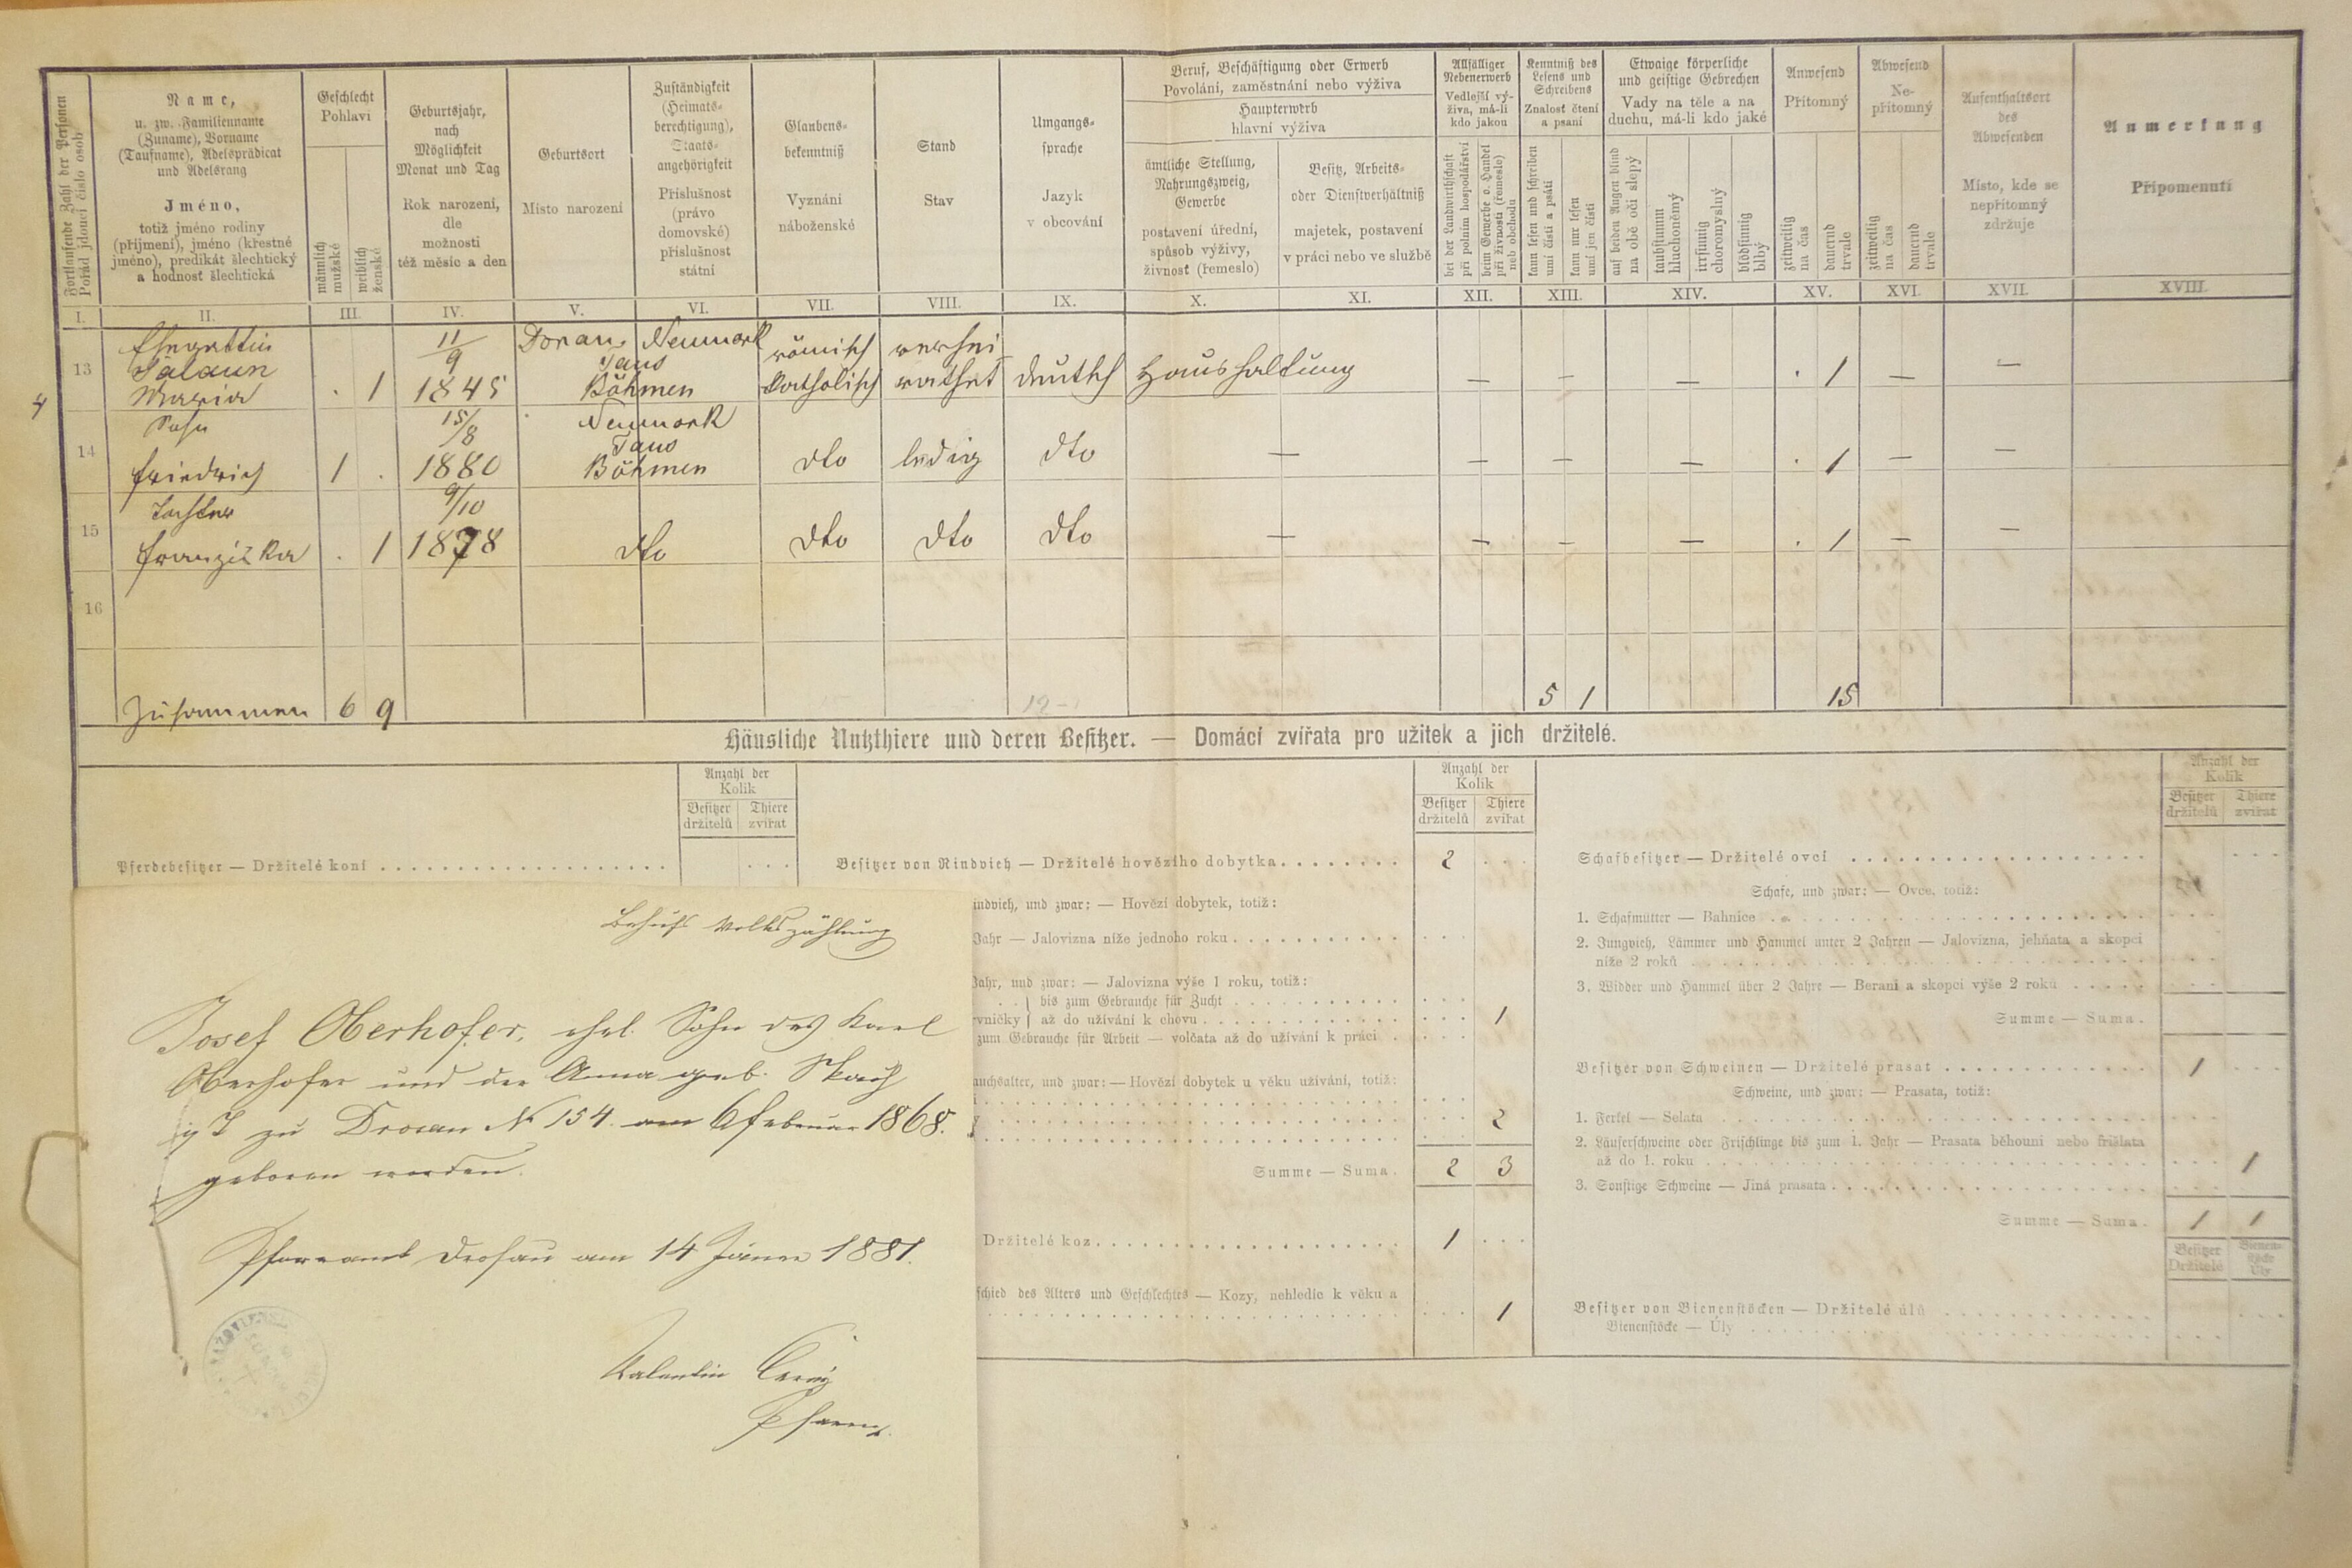 Fortlaufende Zahl der Personen
Pořád jdoucí číslo osob
Name,
u. zw. Familienname
(Zuname), Vorname
(Taufname), Adelsprädicat
und Adelsrang
Jméno,
totiž jméno rodiny
(příjmení), jméno (křestné
jméno), predikát šlechtický
a hodnost šlechtická
Geschlecht
Pohlaví
männlich
mužské
weiblich
ženské
Geburtsjahr,
nach
Möglichkeit
Monat und Tag
Rok narození,
dle
možnosti
též měsíc a den
Geburtsort
Místo narození
Zuständigkeit
(Heimats-
berechtigung),
Staats-
angehörigkeit
Příslušnost
(právo
domovské)
příslušnost
státní
Glaubens-
bekenntniß
Vyznání
náboženské
Stand
Stav
Umgangs-
sprache
Jazyk
v obcování
Beruf, Beschäftigung oder Erwerb
Povolání, zaměstnání nebo výživa
Haupterwerb
hlavní výživa
ämtliche Stellung,
Nahrungszweig,
Gewerbe
postavení úřední,
spůsob výživy,
živnost (řemeslo)
Besitz, Arbeits-
oder Dienstverhältniß
majetek, postavení
v práci nebo ve službě
Allfälliger
Nebenerwerb
Vedlejší vý-
živa, má-li
kdo jakou
bei der Landwirthschaft
při polním hospodářství
beim Gewerbe o. Handel
při živnosti (řemeslo)
neb obchodu
Kenntniß des
Lesens und
Schreibens
Znalost čtení
a psaní
kann lesen und schreiben
umí čísti a psáti
kann nur lesen
umí jen čísti
Etwaige körperliche
und geistige Gebrechen
Vady na těle a na
duchu, má-li kdo jaké
auf beiden Augen blind
na obě oči slepý
taubstumm
hluchoněmý
irrsinnig
choromyslný
blödsinnig
blbý
Anwesend
Přítomný
zeitweilig
na čas
dauernd
trvale
Abwesend
Ne-
přítomný
zeitweilig
na čas
dauernd
trvale
Aufenthaltsort
des
Abwesenden
Místo, kde se
nepřítomný
zdržuje
Anmerkung
Připomenutí
I. II. III. IV. V. VI. VII. VIII. IX. X. XI. XII. XIII. XIV. XV. XVI. XVII. XVIII.
4
13 Ehegattin
Maria . 1 11/9 1845 Neumark Taus Böhmen römisch katholisch verheirathet deutsch Haushaltung — — — . 1 — —
14 Sohn
Friedrich 1 . 15/8 1880 Neumark Taus Böhmen dto ledig dto — — — — . 1 — —
15 Tochter
Franziska . 1 9/10 1878 dto dto dto dto — — — — . 1 — —
16
Zusammen 6 9 5 1 15
Häusliche Nutzthiere und deren Besitzer. — Domácí zvířata pro užitek a jich držitelé.
Anzahl der
Kolik
Besitzer Thiere
držitelů zvířat
Pferdebesitzer — Držitelé koní
Anzahl der
Kolik
Besitzer Thiere
držitelů zvířat
Besitzer von Rindvieh — Držitelé hovězího dobytka 2
indvieh, und zwar: — Hovězí dobytek, totiž:
Jahr — Jalovizna níže jednoho roku
Jahr, und zwar: — Jalovizna výše 1 roku, totiž:
bis zum Gebrauche für Zucht
vničky } až do užívání k chovu 1
zum Gebrauche für Arbeit — volčata až do užívání k práci
auchsalter, und zwar: — Hovězí dobytek u věku užívání, totiž:
2
Summe — Suma. 2 3
Držitelé koz 1
schied des Alters und Geschlechtes — Kozy, nehledíc k věku a
1
Anzahl der
Kolik
Besitzer Thiere
držitelů zvířat
Schafbesitzer — Držitelé ovcí
Schafe, und zwar: — Ovce, totiž:
1. Schafmütter — Bahnice
2. Jungvieh, Lämmer und Hammel unter 2 Jahren — Jalovizna, jehňata a skopci
níže 2 roků
3. Widder und Hammel über 2 Jahre — Berani a skopci výše 2 roků
Summe — Suma.
Besitzer von Schweinen — Držitelé prasat 1
Schweine, und zwar: — Prasata, totiž:
1. Ferkel — Selata
2. Läuferschweine oder Frischlinge bis zum 1. Jahr — Prasata běhouni nebo frišlata
až do 1. roku 1
3. Sonstige Schweine — Jiná prasata
Summe — Suma. 1 1
Besitzer Bienen-
stöcke
Držitelé Úly
Besitzer von Bienenstöcken — Držitelé úlů
Bienenstöcke — Úly
Behufs Volkszählung
Josef Oberhofer, ehel. Sohn des Karl
Oberhofer und der Anna geb.
ist zu Drosau № 154. am 6 Februar 1868.
geboren worden.
Pfarramt Drosau am 14 Jänner 1881.
Valentin Černý
Pfarrer